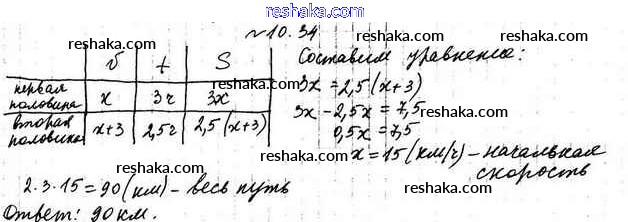 reshaka.com
№10.34
v t S
первая половина x 3ч 3x
вторая половина x+3 2,5ч 2,5(x+3)
Составим уравнение:
3x = 2,5(x+3)
3x - 2,5x = 7,5
0,5x = 7,5
x = 15 (км/ч) - начальная скорость
2·3·15 = 90 (км) - весь путь
Ответ: 90 км.
reshaka.com
reshaka.com
reshaka.com
reshaka.com
reshaka.com
reshaka.com
reshaka.com
reshaka.com
reshaka.com
reshaka.com